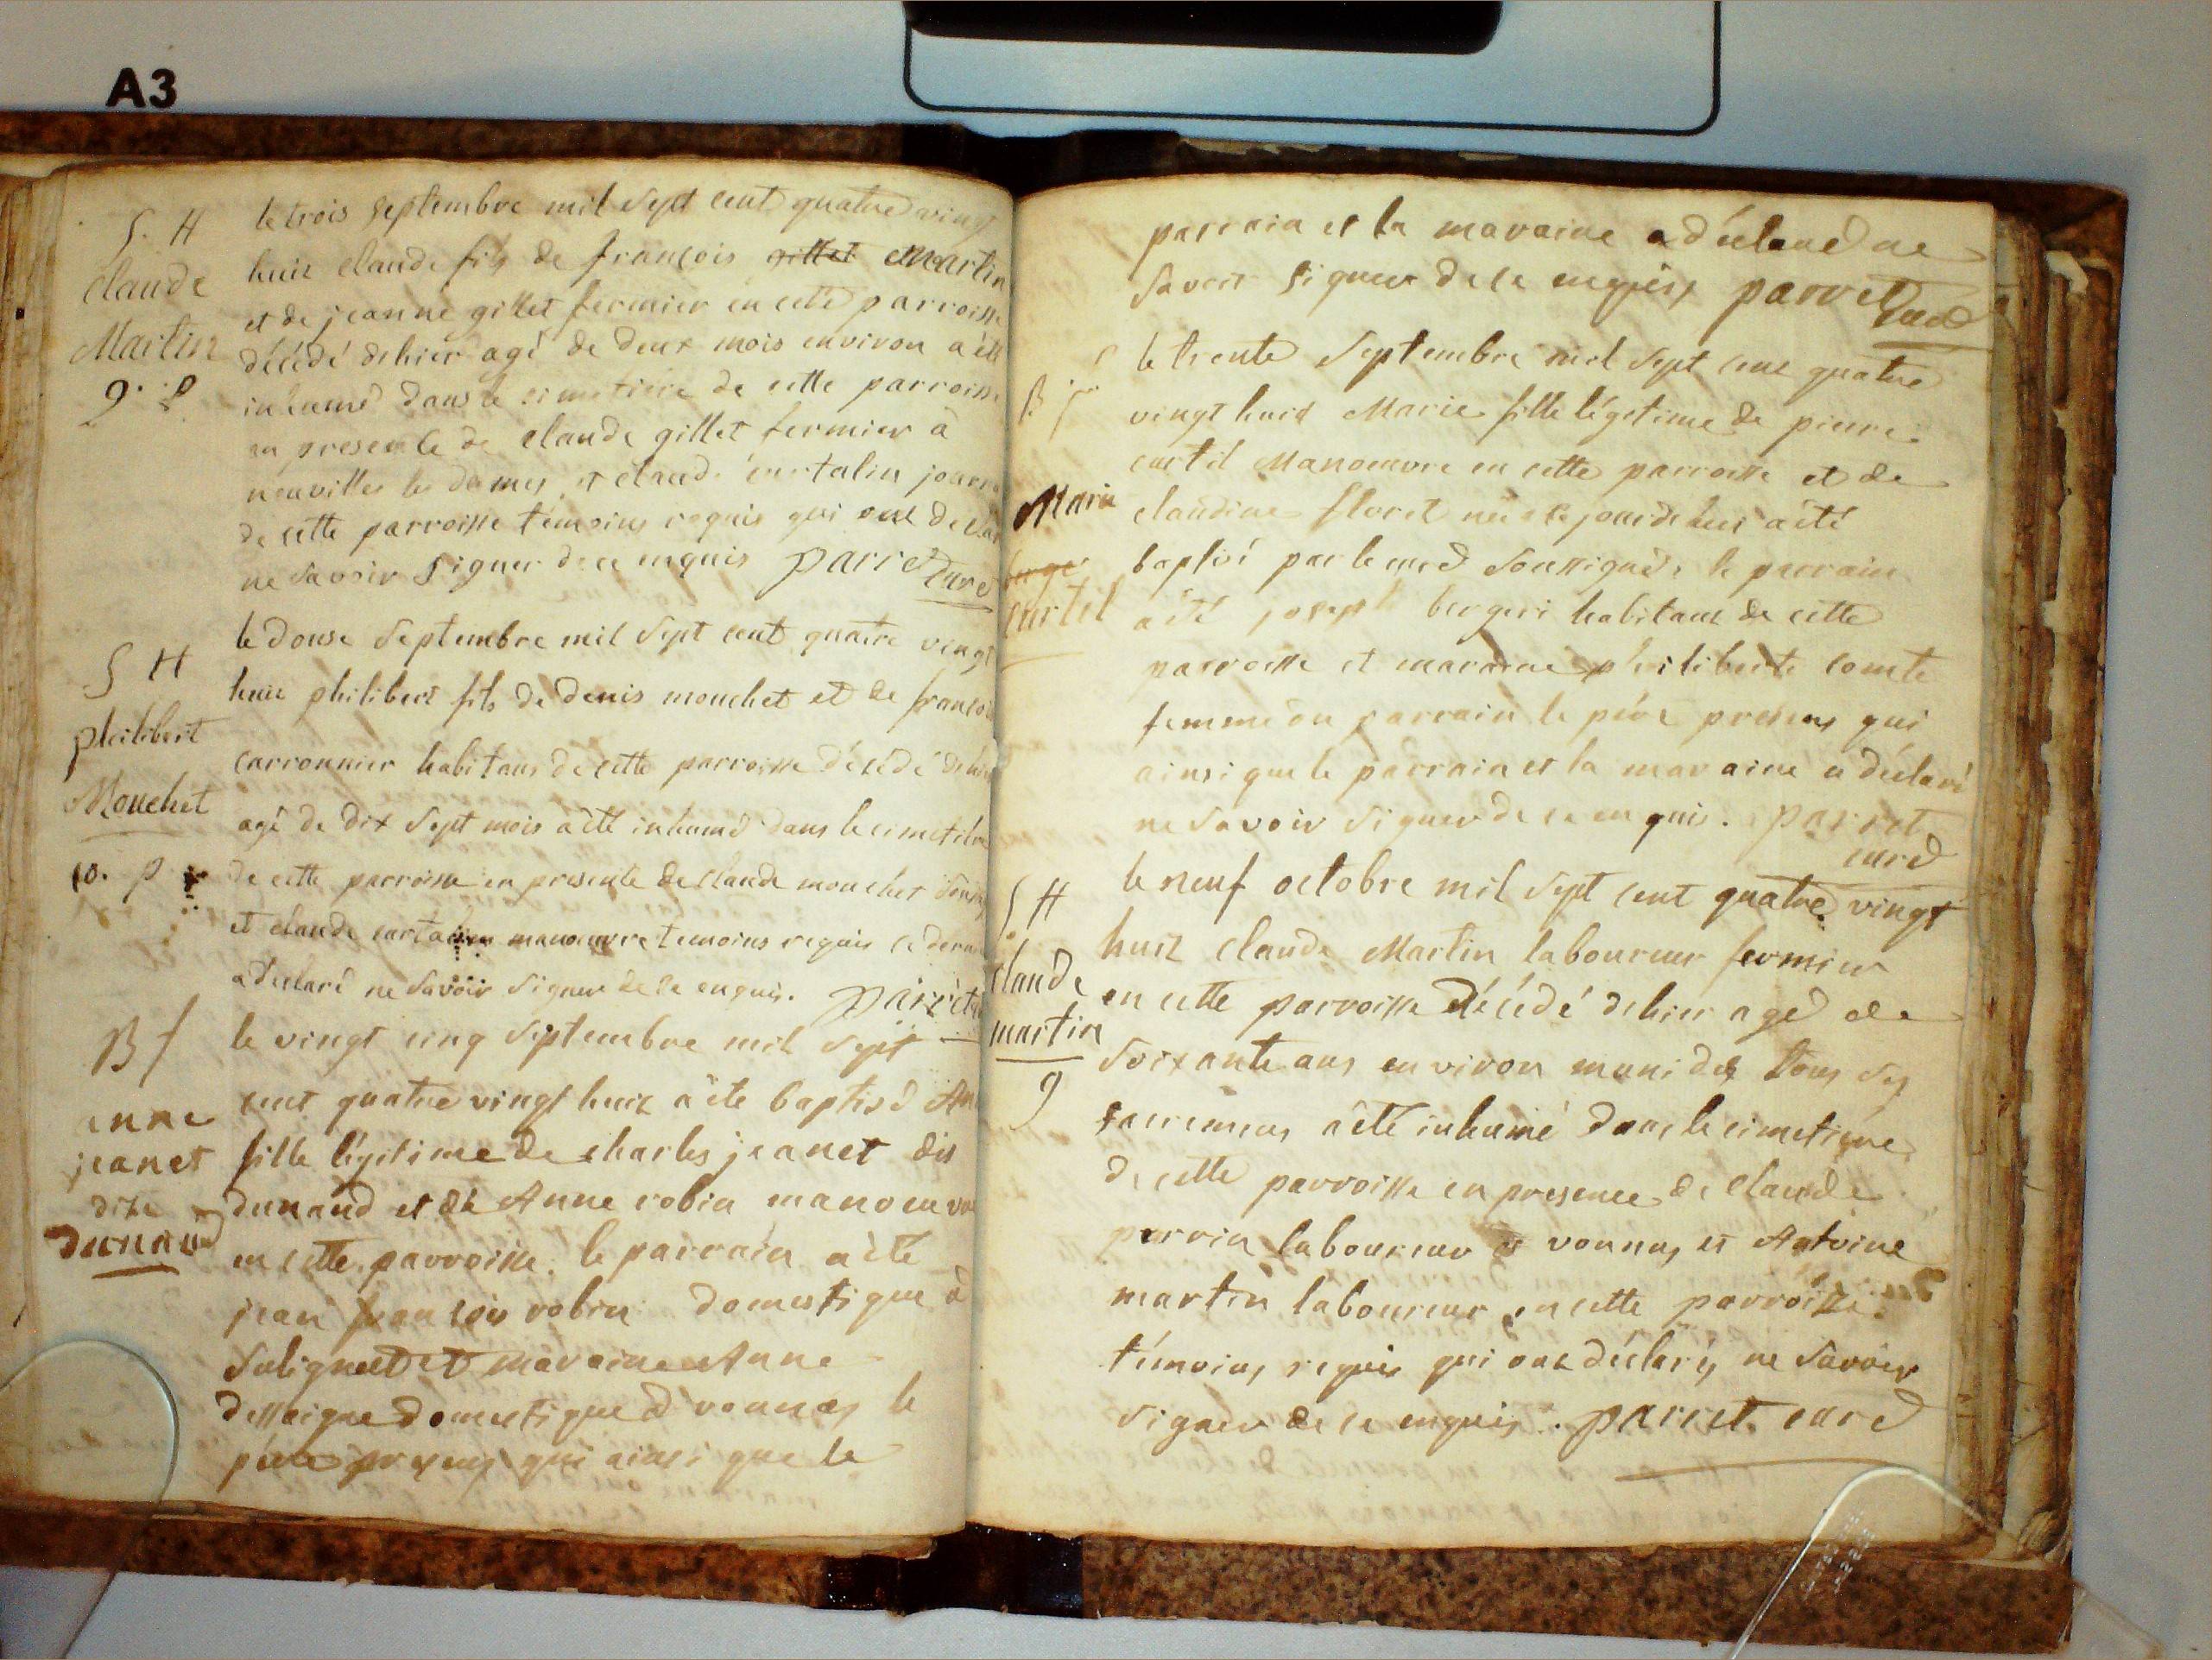 A3
S. H
Claude
Martin
9. p
le trois septembre mil sept cent quatre ving
huit claude fils de françois gillet Martin
et de jeanne gillet fermier en cette parroisse
décédé dehier agé de deux mois environ a été
inhumé dans le cimetiére de cette parroisse
en presence de claude gillet fermier à
neuville les dames et claude curtalin journ
de cette parroisse témoins requis qui ont declar
ne savoir signer de ce enquis parret curé
S H
philibert
Mouchet
10. p
le douse septembre mil sept cent quatre vingt
huit philibert fils de denis mouchet et de françois
carronnier habitans de cette parroisse décédé dehier
agé de dix sept mois a été inhumé dans le cimetiére
de cette parroisse en presente de claude mouchet
et claude curtalin manoeuvre temoins requis ce derni
a declaré ne savoir signer de ce enquis. parret
B f
anne
jeanet
dite
dunand
le vingt cinq septembre mil sept
cent quatre vingt huit a été baptisé An
fille légitime de charles jeanet dit
dunand et de Anne robin manoeuvre
en cette parroisse. le parrain a été
jean françois robin domestique à
Sulignat et maraine Anne
dessaigne domestique à vonnas le
père presens qui ainsi que le
parrain et la maraine a déclaré ne
savoir signer de ce enquis parret curé
B f
Marie
curtil
le trente septembre mil sept cent quatre
vingt huit Marie fille légitime de pierre
curtil Manoeuvre en cette parroisse et de
claudine floret née le jour de hier a été
baptisé par le curé soussigné, le parrain
a été joseph bergeri habitant de cette
parroisse et maraine philiberte comte
femme du parrain le pére presens qui
ainsi que le parrain et la maraine a déclaré
ne savoir signer de ce enquis. parret
curé
S. H
claude
martin
9
le neuf octobre mil sept cent quatre vingt
huit claude Martin laboureur fermier
en cette parroisse décédé dehier agé de
soixante ans environ muni des tous ses
sacremens a été inhumé dans le cimetiére
de cette parroisse en presence de claude
perrin laboureur à vonnas et Antoine
martin laboureur en cette parroisse.
témoins requis qui ont déclarés ne savoir
signer de ce enquis. parret curé